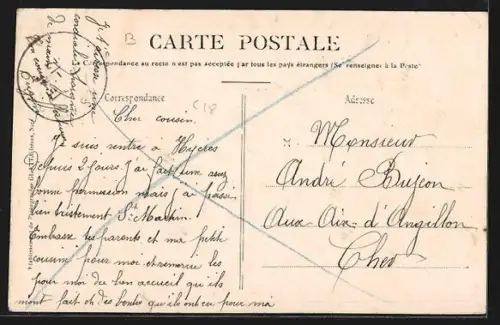 B
CARTE POSTALE
Correspondance au recto n'est pas acceptée par tous les pays étrangers (Se renseigner à la Poste)
Correspondance
Adresse
C18
Cher cousin.
Je suis rentré à Hyères
depuis 2 jours j'ai fait une assez
bonne permission mais j'ai passé
bien tristement St Martin.
Embrasse tes parents et ma petite
cousine pour moi et remercie les
pour moi du bon accueil qu'ils
m'ont fait et des bontés qu'ils ont eu pour moi
Monsieur
André Bujeon
Aux Aix-d'Angillon
Cher